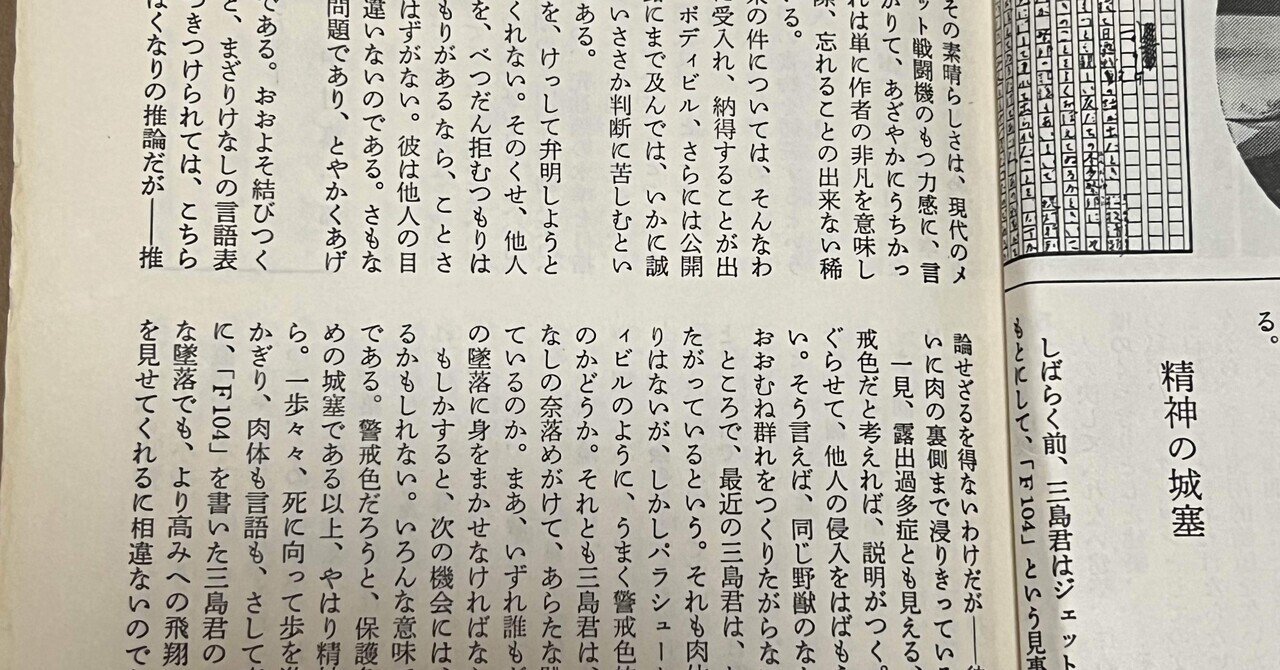 る。
精神の城塞
しばらく前、三島君はジェット
もとにして、「F104」という見
その素晴らしさは、現代のメ
ット戦闘機のもつ力感に、言
がりて、あざやかにうちかっ
れは単に作者の非凡を意味し
際、忘れることの出来ない稀
いる。
の件については、そんなわ
に受入れ、納得することが出
ボディビル、さらには公開
にまで及んでは、いかに誠
いささか判断に苦しむとい
ある。
を、けっして弁明しようと
くれない。そのくせ、他人
を、べつだん拒むつもりは
もりがあるなら、ことさ
はずがない。彼は他人の目
違いないのである。さもな
問題であり、とやかくあげ
である。おおよそ結びつく
と、まざりけなしの言語表
つきつけられては、こちら
はくなりの推論だが――推
論せざるを得ないわけだが――
いに肉の裏側まで浸りきっている
一見、露出過多症とも見える、
戒色だと考えれば、説明がつく。
ぐらせて、他人の侵入をはばもう
い。そう言えば、同じ野獣のな
おおむね群れをつくりたがらな
ところで、最近の三島君は、
たがっているという。それも肉体
りはないが、しかしパラシュー
ィビルのように、うまく警戒色
のかどうか。それとも三島君は、
なしの奈落めがけて、あらたな
ているのか。まあ、いずれ誰も
の墜落に身をまかせなければな
もしかすると、次の機会には、
るかもしれない。いろんな意味
である。警戒色だろうと、保護
めの城塞である以上、やはり精
ら。一歩々々、死に向って歩を進
かぎり、肉体も言語も、さして
に、「F104」を書いた三島君の
な墜落でも、より高みへの飛翔
を見せてくれるに相違ないので